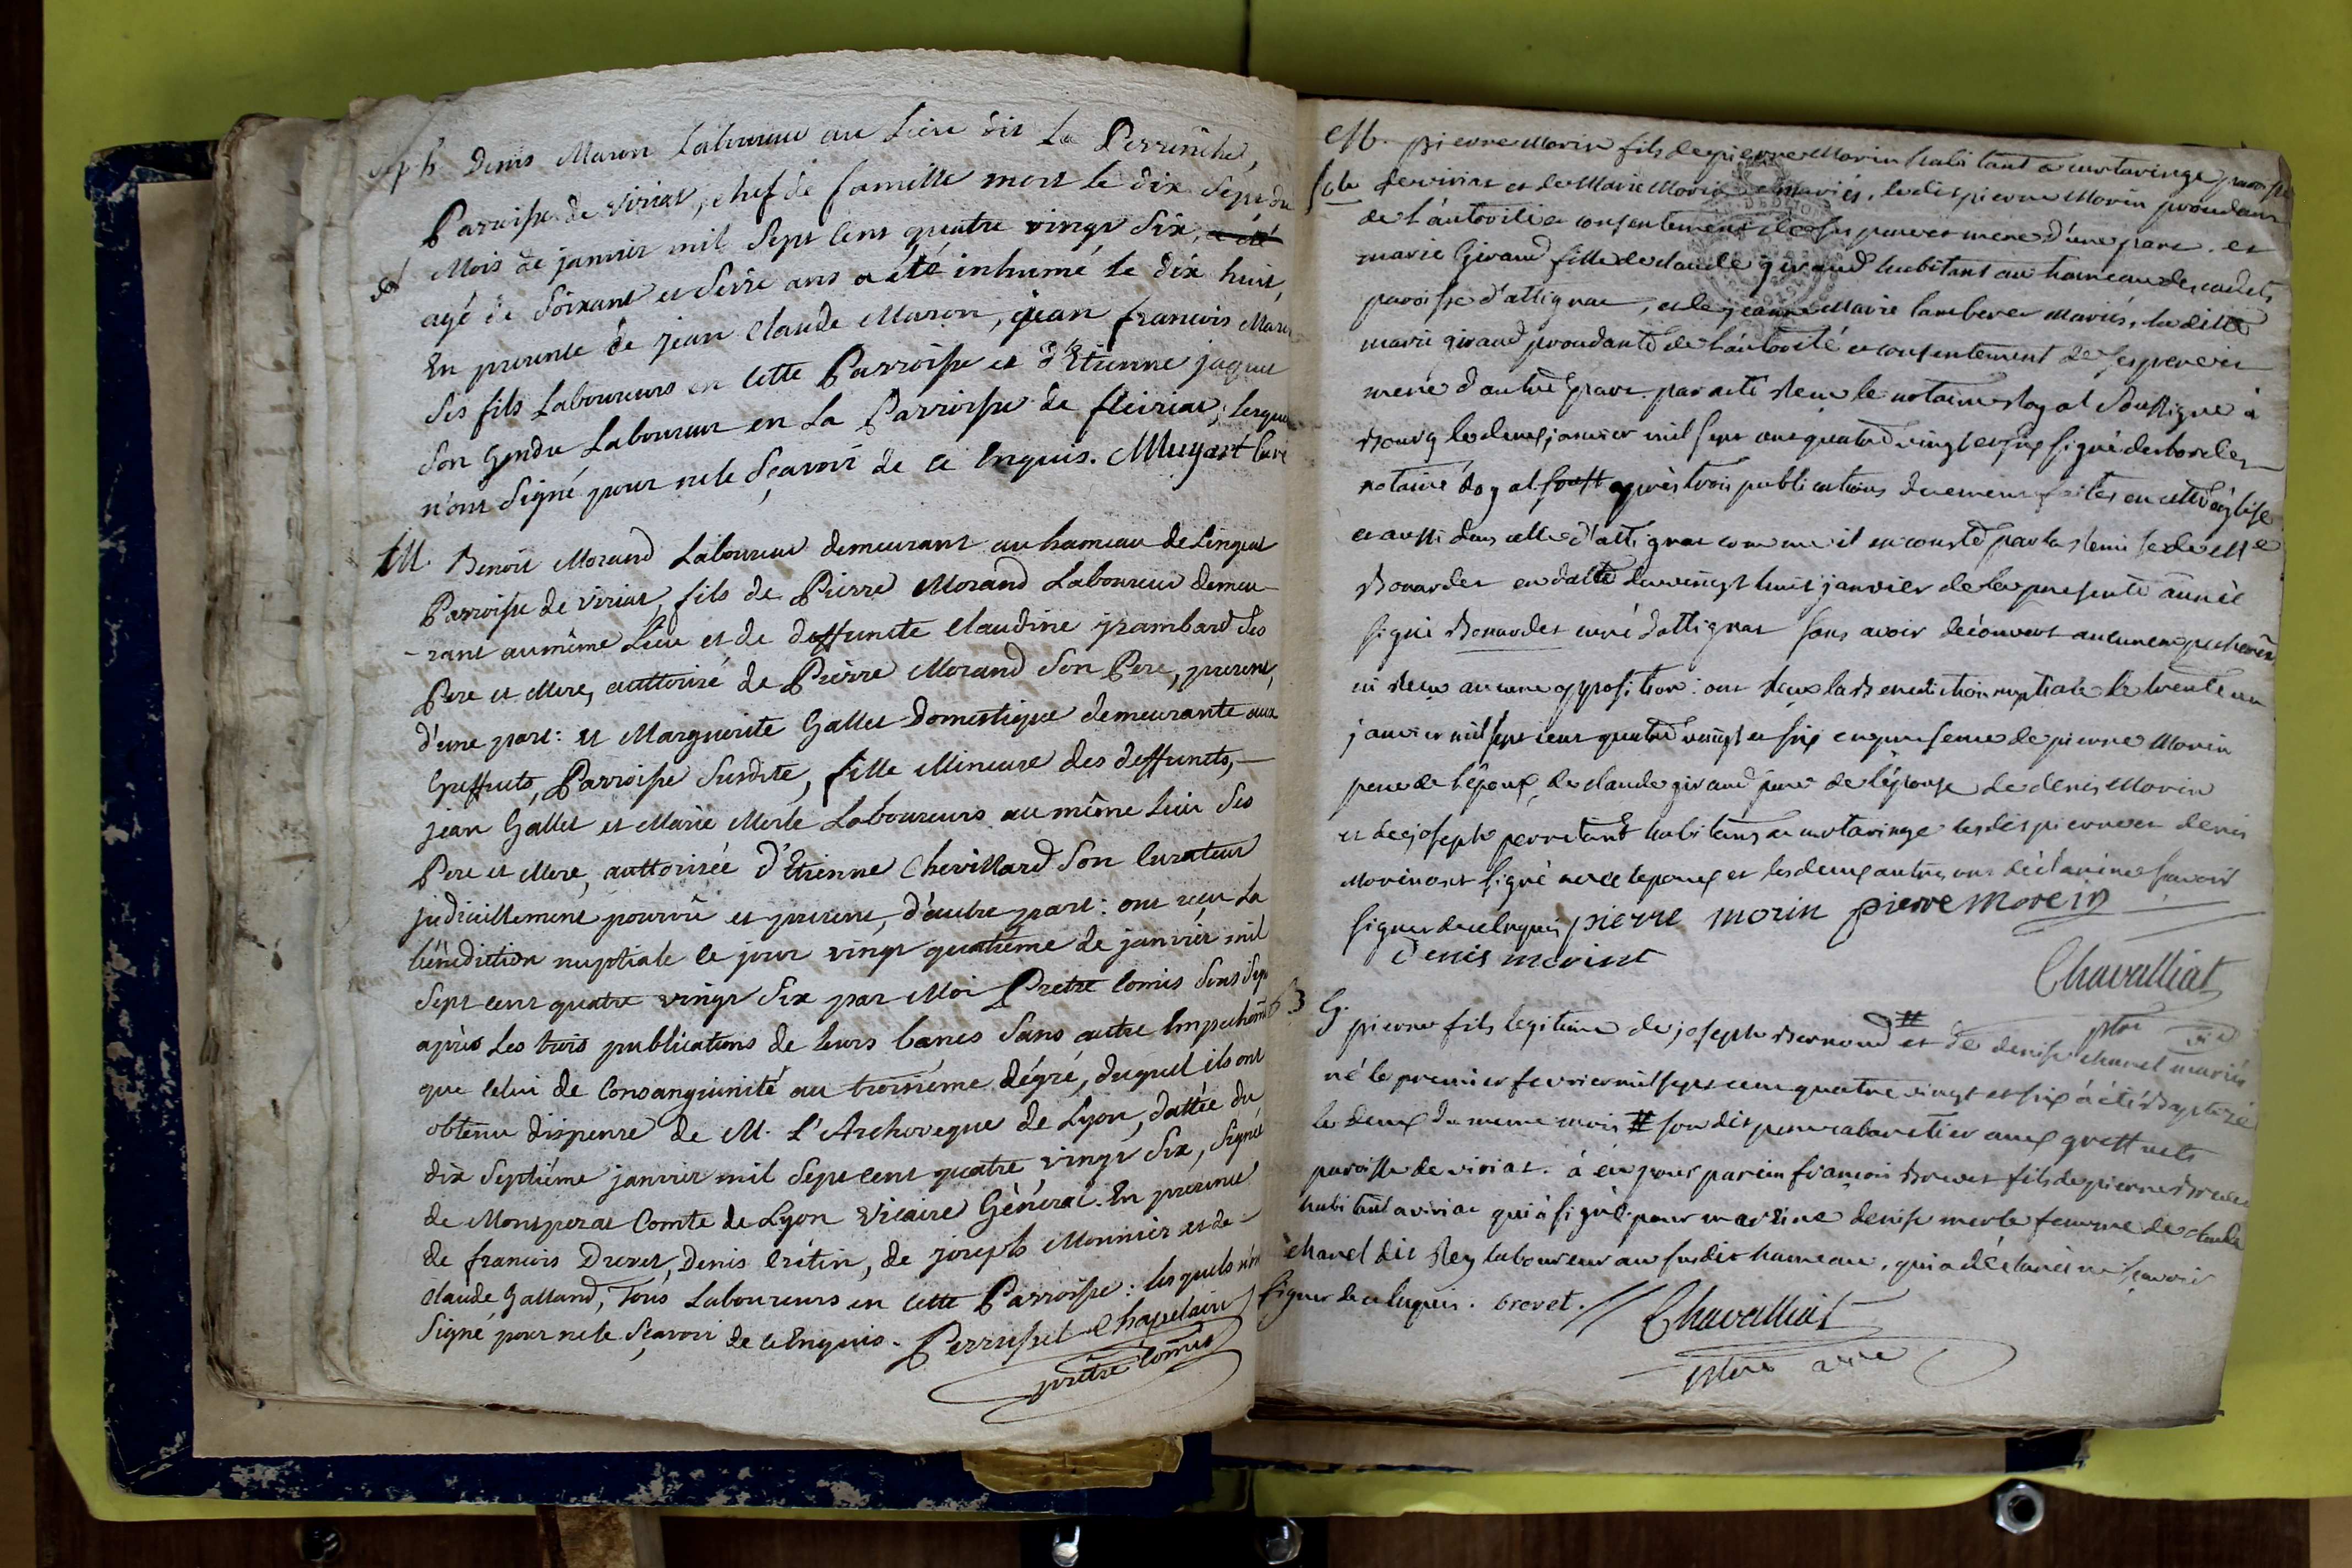 Seph. Denis Maron Laboureur au Lieu dit La Perrinche,
Parroisse de viriat, chef de famille mort le dix Sept du
Mois de janvier mil Sept Cent quatre vingt Six, a été
agé de Soixante et Seize ans a été inhumé le dix huit,
En presence de jean Claude Maron, jean françois Maron
Ses fils Laboureurs en Cette Parroisse et d'Etienne jaques
Son Gendre Laboureur en La Parroisse de fleiriat; lesquels
n'ont Signé pour ne le Sçavoir de ce Enquis. Muyart Curé
M. Benoit Morand Laboureur demeurant au hameau de Lingeat
Parroisse de viriat, fils de Pierre Morand Laboureur demeu-
-rant au même Lieu et de deffuncte Claudine grambard Ses
Pere et Mere, authorisé de Pierre Morand Son Pere, present,
d'une part: et Marguerite Gallet Domestique demeurante aux
Greffuts, Parroisse Susdite, fille Mineure des deffuncts,
jean Gallet et Marie Merle Laboureurs au même lieu Ses
Pere et Mere, authorisée d'Etienne Chevillard Son Curateur
judiciellement pourvû et present, d'autre part: ont reçu La
bénédiction nuptiale ce jour vingt quatrième de janvier mil
Sept cent quatre vingt Six par Moi Prêtre Comis Sous
après Les trois publications de leurs bancs Sans autre Empechemt
que Celui de Consanguinité au troisième dégré, duquel ils ont
obtenu dispense de M. L'Archeveque de Lyon, dattée du
dix Septième janvier mil Sept cent quatre vingt Six, Signée
de Montperat Comte de Lyon vicaire Général. En presence
de françois Drevet, Denis Crétin, de joseph Monnier et de
Claude Galland, Tous Laboureurs en Cette Parroisse: lesquels n'ont
Signé pour ne le Sçavoir de ce Enquis. Perruset Chapelain
prêtre Comis
M. pierre Morin fils de pierre Morin habitant a curtaringe paroisse
de viriat et de Marie Morin mariés, ledit pierre Morin procedant
de l'autorité et consentement de ses pere et mere d'une part. et
marie Giraud fille de claude giraud habitant au hameau des cadets
paroisse d'attignat, et de jeanne Marie Lamberet mariés, la ditte
marie giraud procedante de l'autorité et consentement de ses pere et
mere d'autre part. par acte reçu le notaire Royal Soussigné à
Bourg le deux janvier mil sept cent quatre vingt et six signé desbordes
notaire Royal sousst après trois publications duement faites en cette église
et aussi dans celle d'attignat comme il en conste par la remise de Mre
Bouardet en datte du vingt huit janvier de la presente année
signé Bouardet curé d'attignat sans avoir découvert aucun empechemen
ni reçu aucune opposition: ont reçu la Benediction nuptiale le trente un
janvier mil sept cent quatre vingt et six en presence de pierre Morin
pere de l'époux, de claude giraud pere de l'épouse de denis Morin
et de joseph perretant habitans a curtaringe lesdits pierre et denis
Morin ont signé avec l'epoux et les deux autres ont déclaré ne savoir
signer de ce enquis pierre morin pierre Morein
denis morint
Chavalliat
ptre vic
63 G. pierre fils legitime de joseph Bernoud # et de denise chanel mariés
né le premier fevrier mil sept cent quatre vingt et six à été Baptizé
le deux du meme mois # son dit pere cabaretier aux greffuets
paroisse de viriat. à eu pour parein françois Brevet fils de pierre Brevet
habitant a viriat qui à signé pour mareine denise merle femme de claude
chanel dit Rey laboureur au susdit hameau, qui a déclaré ne sçavoir
signer de ce enquis. brevet. // Chavalliat
ptre vic